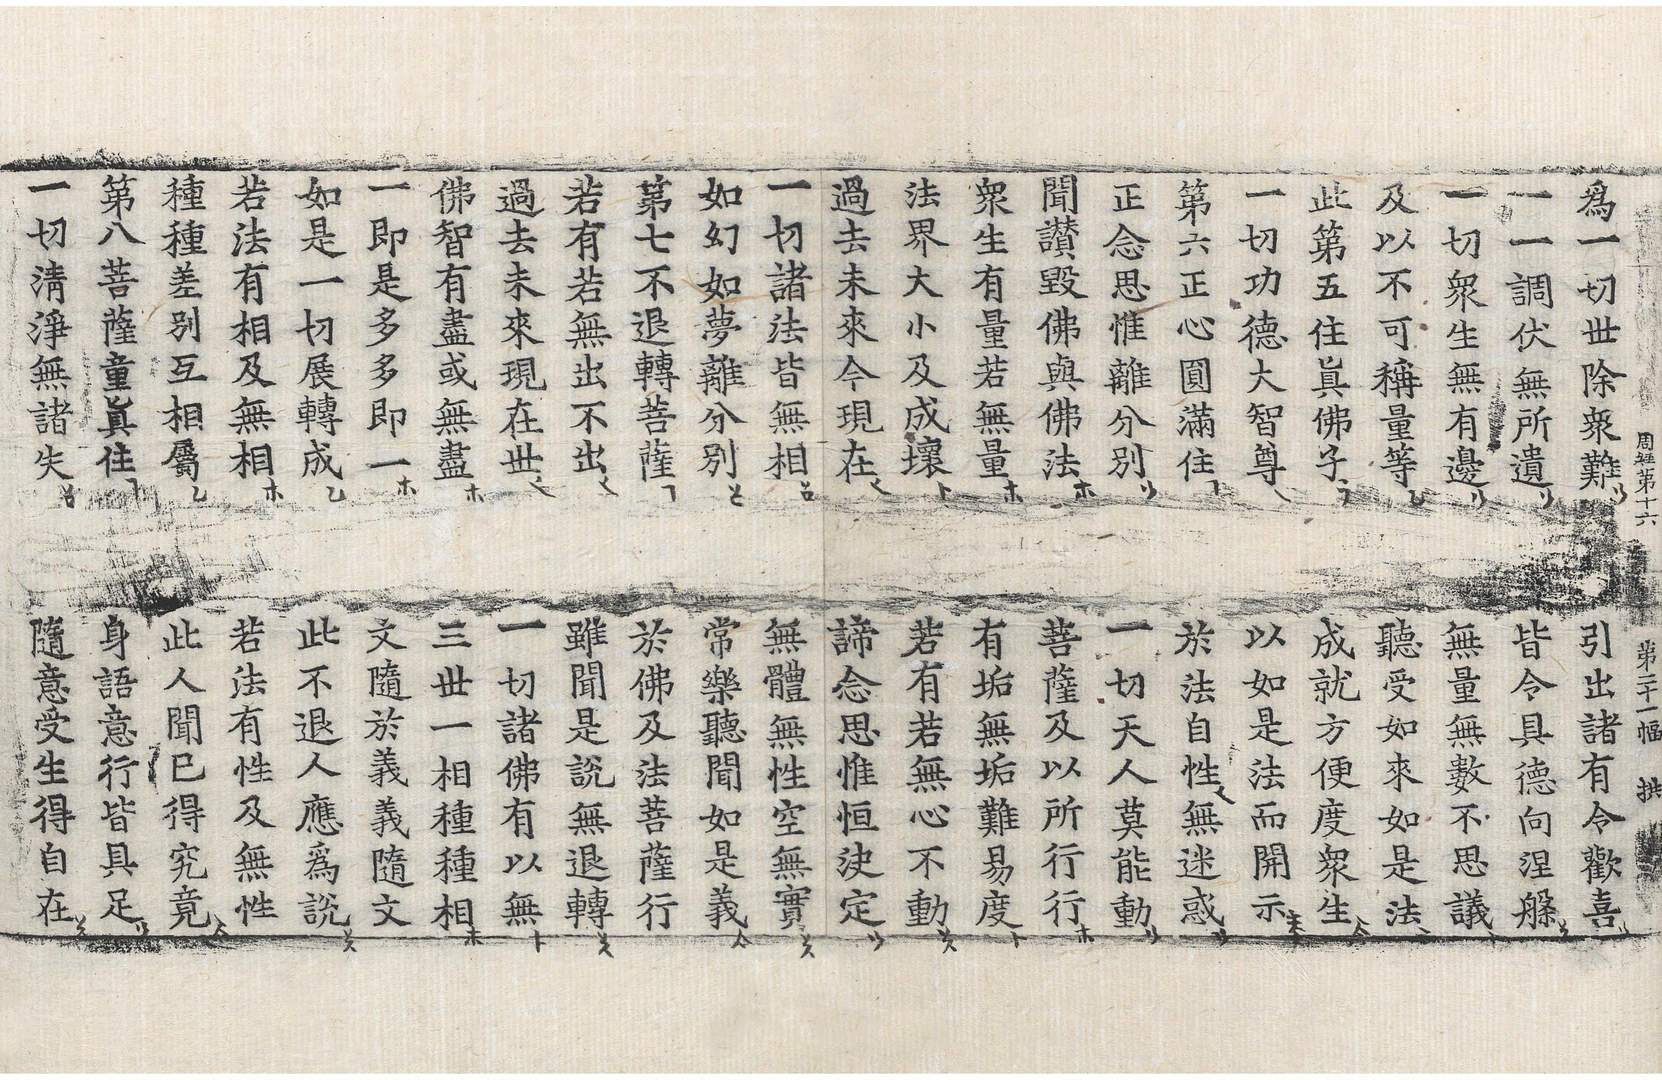 周經第十六 第二十一幅 拱
爲一切世除衆難 引出諸有令歡喜
一一調伏無所遺 皆令具德向涅槃
一切衆生無有邊 無量無數不思議
及以不可稱量等 聽受如來如是法
此第五住眞佛子 成就方便度衆生
一切功德大智尊 以如是法而開示
第六正心圓滿住 於法自性無迷惑
正念思惟離分別 一切天人莫能動
聞讃毀佛與佛法 菩薩及以所行行
衆生有量若無量 有垢無垢難易度
法界大小及成壞 若有若無心不動
過去未來今現在 諦念思惟恒決定
一切諸法皆無相 無體無性空無實
如幻如夢離分別 常樂聽聞如是義
第七不退轉菩薩 於佛及法菩薩行
若有若無出不出 雖聞是説無退轉
過去未來現在世 一切諸佛有以無
佛智有盡或無盡 三世一相種種相
一即是多多即一 文隨於義義隨文
如是一切展轉成 此不退人應爲説
若法有相及無相 若法有性及無性
種種差別互相屬 此人聞已得究竟
第八菩薩童眞住 身語意行皆具足
一切清淨無諸失 隨意受生得自在